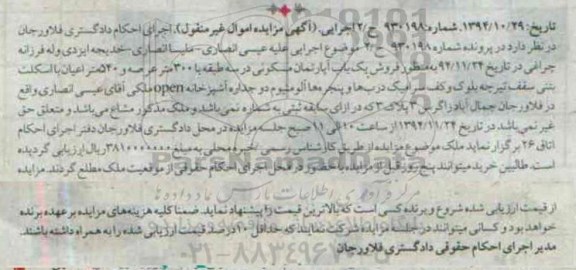 تاریخ: ۱۳۹۴/۱۰/۲۹. شماره: ۹۳۰۱۹۸ ح/۲ اجرایی. (آگهی مزایده اموال غیر منقول). اجرای احکام دادگستری فلاورجان
در نظر دارد در پرونده شماره ۹۳۰۱۹۸ ح/۲ موضوع اجرایی علیه عیسی انصاری-ملیسا انصاری-خدیجه ایزدی وله فرزانه
چراغی در تاریخ ۹۲/۱۱/۲۴ به منظور فروش یک باب آپارتمان مسکونی در سه طبقه با ۳۰۰ متر عرصه و ۵۲۰ متر اعیان با اسکلت
بتنی سقف تیرچه بلوک و کف سرامیک درب‌ها و پنجره‌ها آلومینیوم دو جداره آشپزخانه open ملکی آقای عیسی انصاری واقع
در فلاورجان جمال آباد زاگرس ۳ پلاک ۳ که در ازای سابقه ثبتی به شماره نمی باشد و ملک مذکور مشاع می باشد و متعلق حق
غیر نمی‌باشد در تاریخ ۱۳۹۴/۱۱/۲۴ از ساعت ۱۰ الی ۱۱ صبح جلسه مزایده در محل دادگستری فلاورجان دفتر اجرای احکام
اتاق ۲۶ برگزار نماید ملک موضوع مزایده از طریق کارشناس رسمی/خبره محلی به مبلغ ۳۸۱۰۰۰۰۰۰۰ ریال ارزیابی گردیده
است. طالبین خرید میتوانند پنج روز قبل از مزایده با حضور در محل اجرای احکام حقوقی از موقعیت ملک مطلع گردند. مزایده
از قیمت ارزیابی شده شروع و برنده کسی است که بالاترین قیمت را پیشنهاد نماید. ضمنا کلیه هزینه‌های مزایده بر عهده برنده
خواهد بود و کسانی میتوانند در جلسه مزایده شرکت نمایند که حداقل ۱۰ درصد قیمت ارزیابی شده را به همراه داشته باشند.
مدیر اجرای احکام حقوقی دادگستری فلاورجان
ParsNamadData
مرکز فرآوری اطلاعات پارس نماد داده ها
۰۲۱-۸۸۳۴۹۶۷